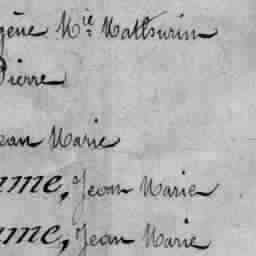 gène Mie Mathurin
Pierre
ean Marie
ame, Jean Marie
ame, Jean Marie